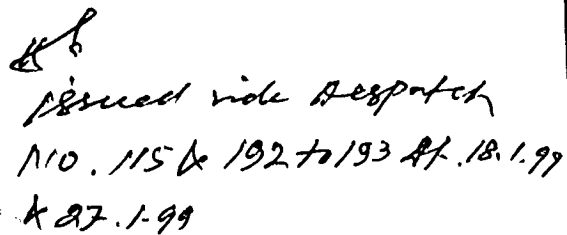 issued vide Despatch
No. 115 & 192 to 193 dt. 18.1.99
& 27.1.99